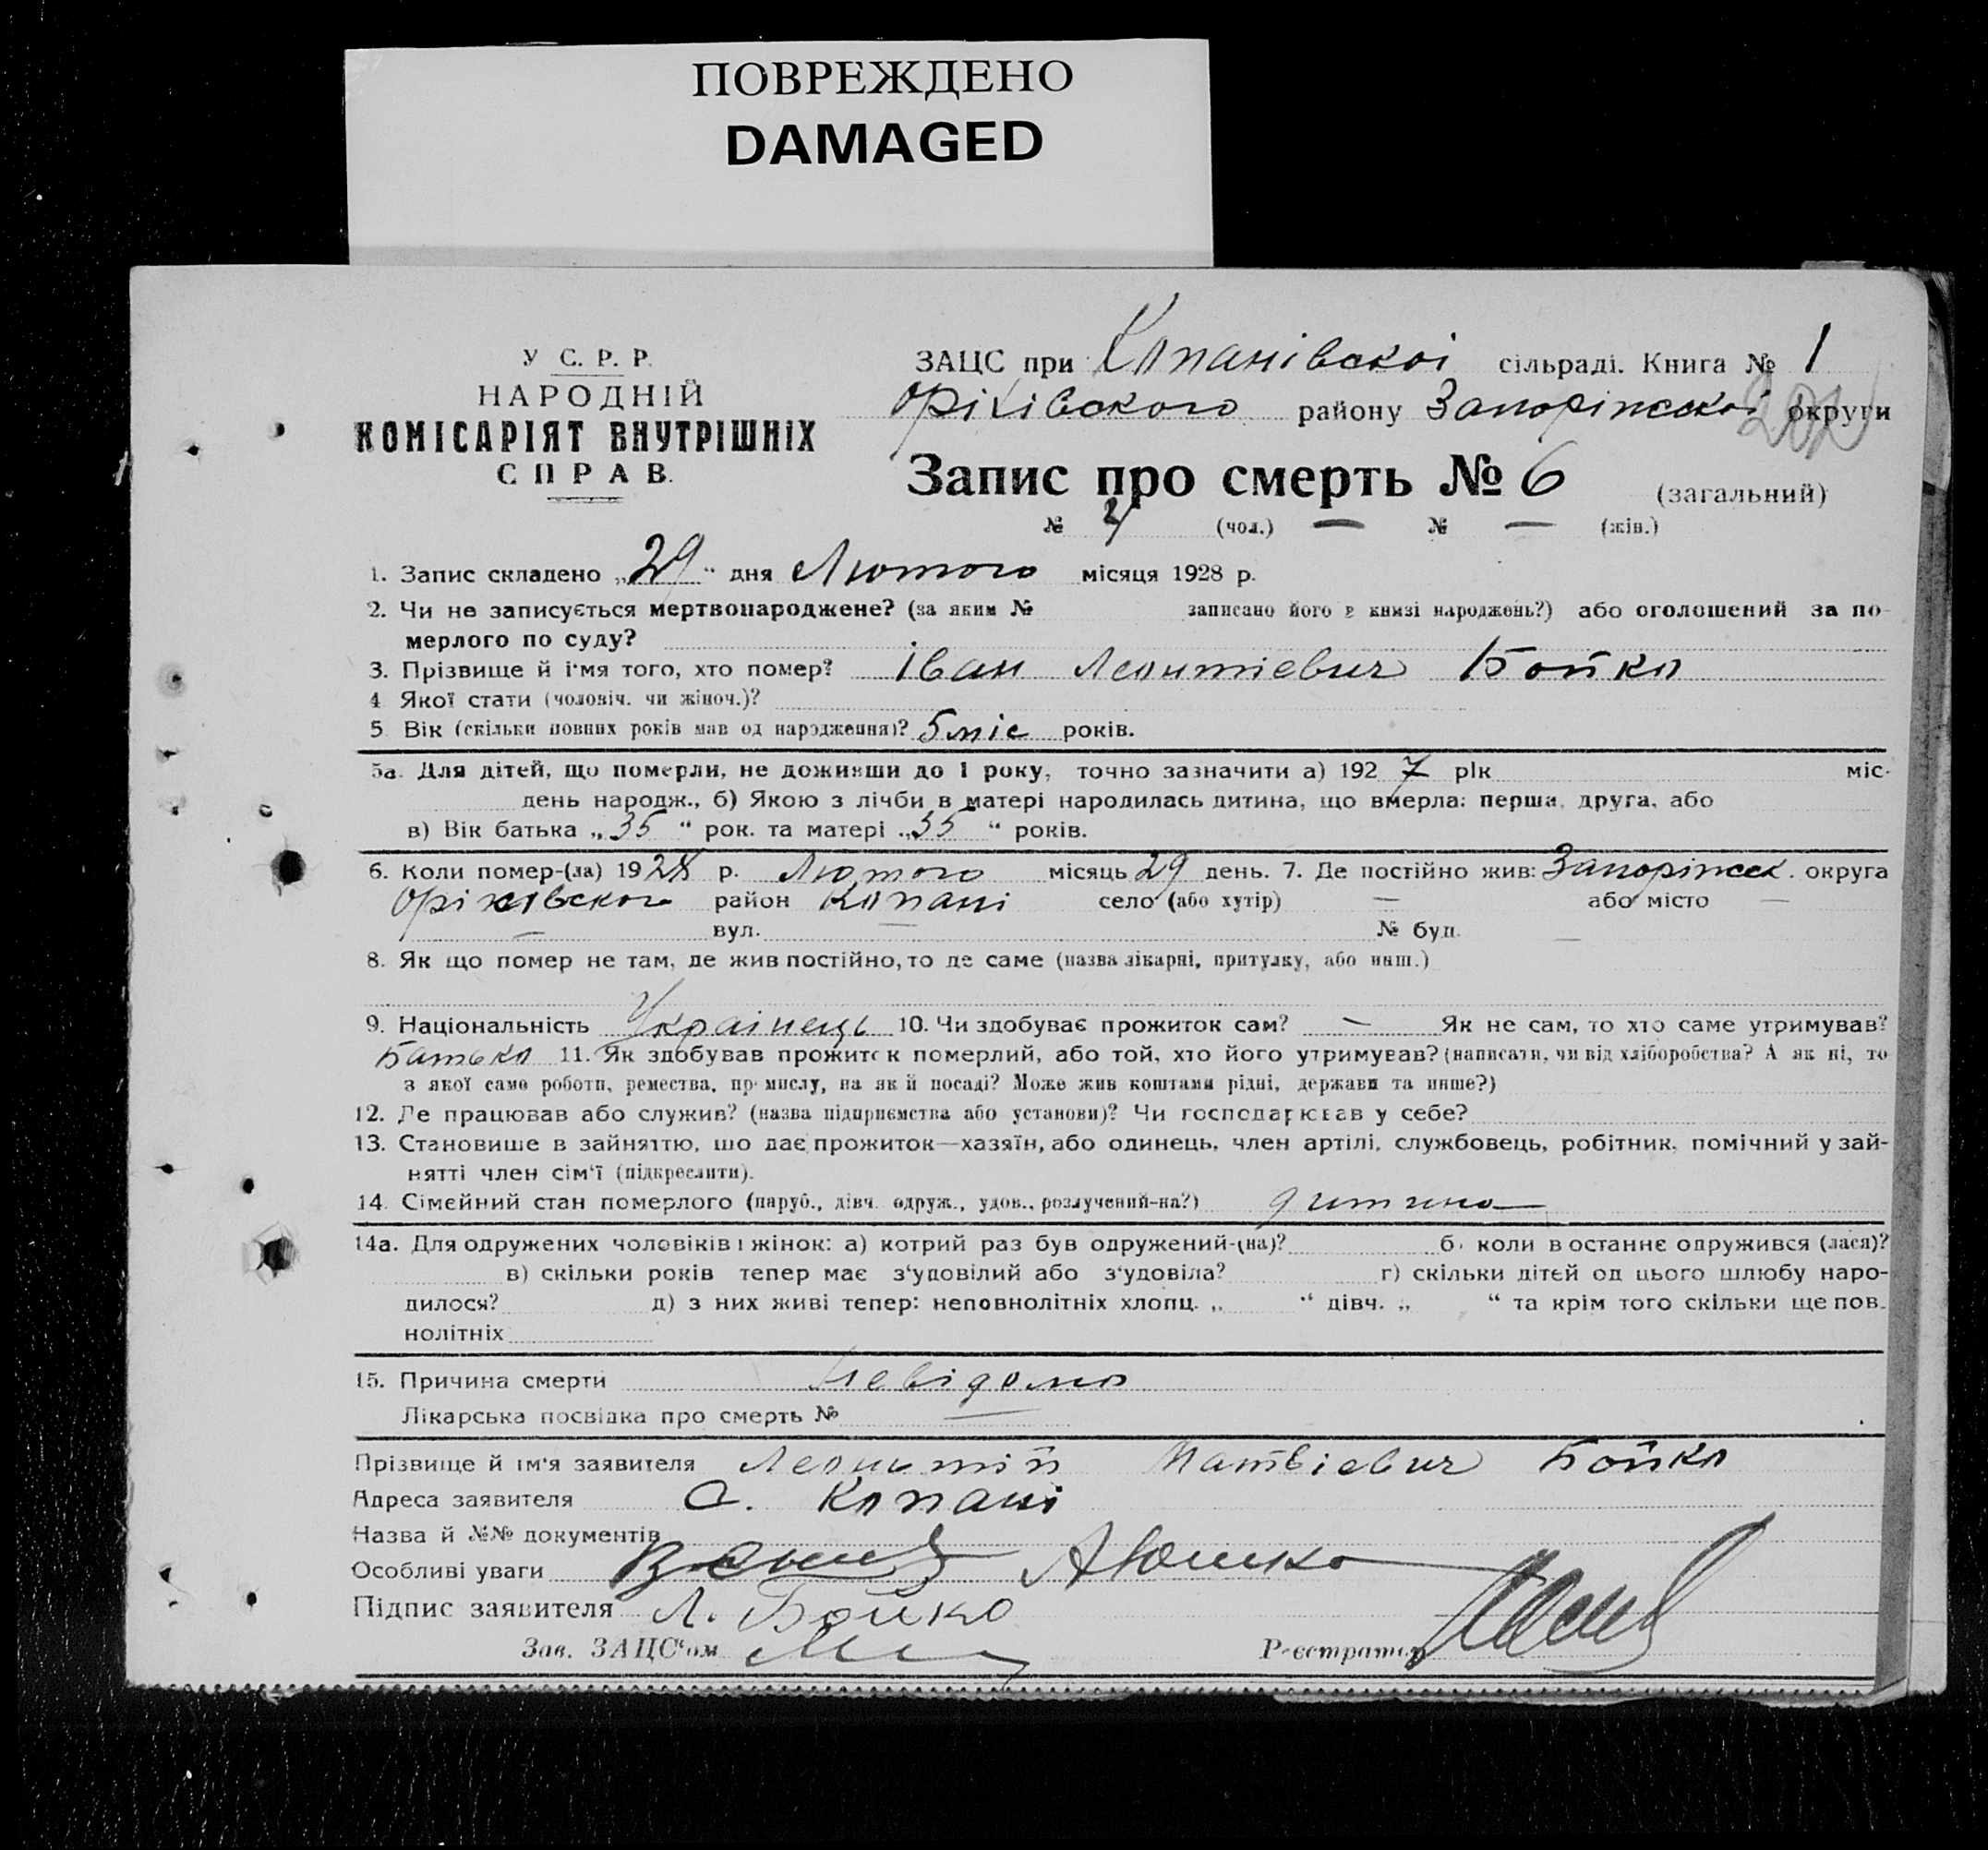 ПОВРЕЖДЕНО
DAMAGED
У С. Р. Р.
НАРОДНІЙ
КОМІСАРІЯТ ВНУТРІШНІХ
СПРАВ.
ЗАЦС при Копанівскоі сільраді. Книга № 1
Оріхівского району Запоріжскоі округи
Запис про смерть № 6 (загальний)
№ 4 (чол.) — № — (жін.)
1. Запис складено „29“ дня Лютого місяця 1928 р.
2. Чи не записується мертвонароджене? (за яким № записано його в книзі народжень?) або оголошений за по-
мерлого по суду?
3. Прізвище й ім'я того, хто помер? Іван Леонтієвич Бойко
4 Якої стати (чоловіч. чи жіноч.)?
5 Вік (скільки повних років мав од народження)? 5 міс років.
5а. Для дітей, що померли, не доживши до 1 року, точно зазначити а) 1927 рік міс.
день народж., б) Якою з лічби в матері народилась дитина, що вмерла: перша, друга, або
в) Вік батька „35“ рок. та матері „35“ років.
6. Коли помер-(ла) 1928 р. Лютого місяць 29 день. 7. Де постійно жив: Запоріжск. округа
Оріхівского район Копані село (або хутір) — або місто —
— вул. — № буд. —
8. Як що помер не там, де жив постійно, то де саме (назва лікарні, притулку, або инш.)
9. Національність Украінець 10. Чи здобуває прожиток сам? — Як не сам, то хто саме утримував?
Батько 11. Як здобував прожиток померлий, або той, хто його утримував? (написати, чи від хліборобства? А як ні, то
з якої саме роботи, ремества, промислу, на якій посаді? Може жив коштами рідні, держави та инше?)
12. Де працював або служив? (назва підприємства або установи)? Чи господарював у себе?
13. Становище в зайняттю, що дає прожиток—хазяїн, або одинець, член артілі, службовець, робітник, помічний у зай-
нятті член сім'ї (підкреслити).
14. Сімейний стан померлого (паруб., дівч. одруж., удов., розлучений-на?) дитина
14а. Для одружених чоловіків і жінок: а) котрий раз був одружений-(на)? б) коли востаннє одружився (лася)?
в) скільки років тепер має з'удовілий або з'удовіла? г) скільки дітей од цього шлюбу наро-
дилося? д) з них живі тепер: неповнолітніх хлопц. „ “ дівч. „ “ та крім того скільки ще пов.
нолітніх
15. Причина смерти Невідомо
Лікарська посвідка про смерть № —
Прізвище й ім'я заявителя Леонтій Матвієвич Бойко
Адреса заявителя С. Копані
Назва й №№ документів
Особливі уваги
Підпис заявителя Л. Бойко
Зав. ЗАЦС'ом Реєстратор